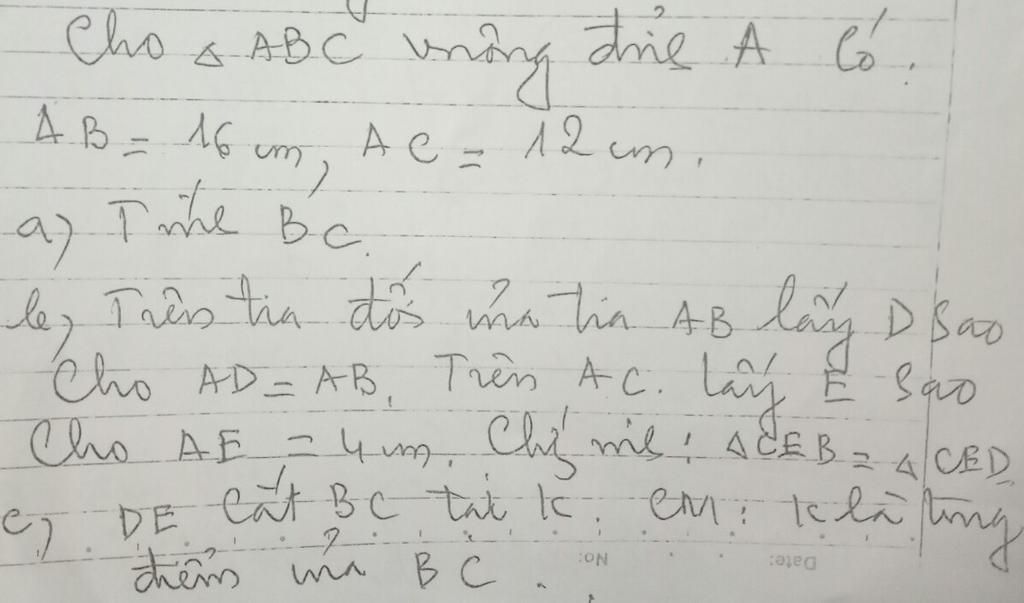 Cho △ ABC vuông đỉnh A Có.
AB = 16 cm, AC = 12 cm.
a) Tính BC.
b) Trên tia đối của tia AB lấy D Sao
Cho AD = AB. Trên AC. lấy E Sao
Cho AE = 4 cm. Chứng minh: △CEB = △CED
c) DE Cắt BC tại K. CM: K là trung
điểm của BC.
No:
Date: